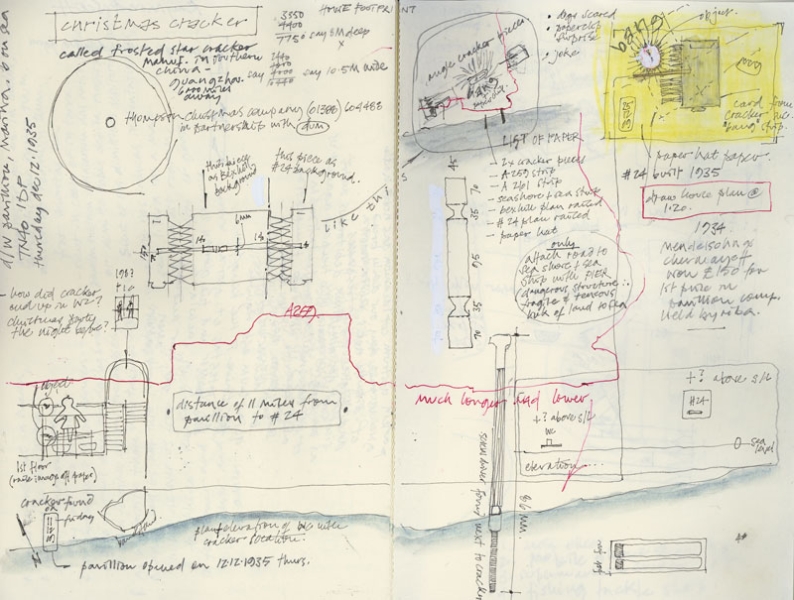 christmas cracker
called frosted star cracker
manuf. in southern
china -
guangzhou. say
6000 miles
away
thompson christmas company (01388) 604488
in partnership with
d/w pavilion, marina. b on sea
TN40 1DP
thursday dec. 12. 1935
3550
4400
7750 say 8M deep
x
say 10.5M wide
HOUSE FOOTPRINT
this piece
as bexhill
background
this piece as
#24 background.
6mm
like thi
how did cracker
end up in WC?
christmas party
the night before?
A259
distance of 11 miles from
pavilion to #24
1st floor
cracker found
on
friday
plan/elevation of
cracker location.
pavilion opened on 12.12.1935 thurs.
angle cracker pieces
bang
• paperclip
• joke
LIST OF PAPER
- 2x cracker pieces
- A259 strip
- A2101 strip
- seashore & sea strip
- bexhill plan raised
- #24 plan raised
- paper hat
only
attach road to
sea shore & sea
strip with PIER
dangerous structure ∴
fragile & tenuous
link of land to sea
much longer and lower
+? above s/l
WC
elevation...
screwdriver found next to cracker
86mm
bang
card from
cracker
"bang" strip.
paper hat paper.
#24 built 1935
draw house plan @
1:20.
1934
mendelsohn &
chermayeff
won £150 for
1st prize in
pavilion comp.
held by riba.
+? above s/l
#24
sea
level